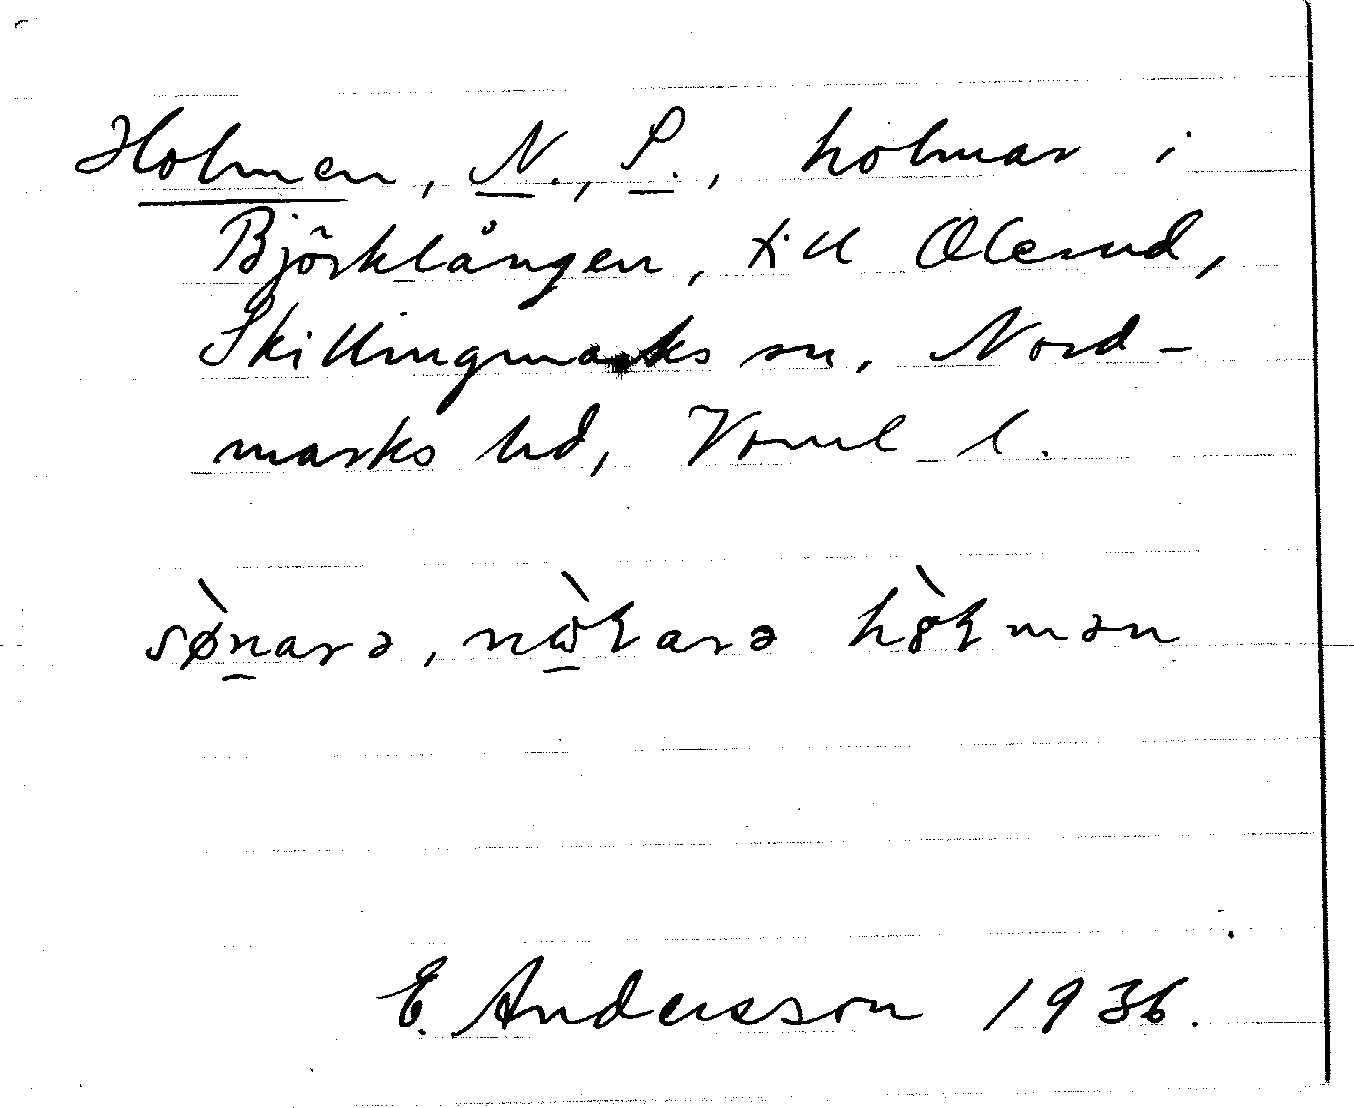 Holmen, N., S., holmar i
Björklången, till Olerud,
Skillingmarks sn, Nord-
marks hd, Vrml l.
sø̀narə, nɷ̀ɽarə hɞ̀ɽmən
E. Andersson 1936.